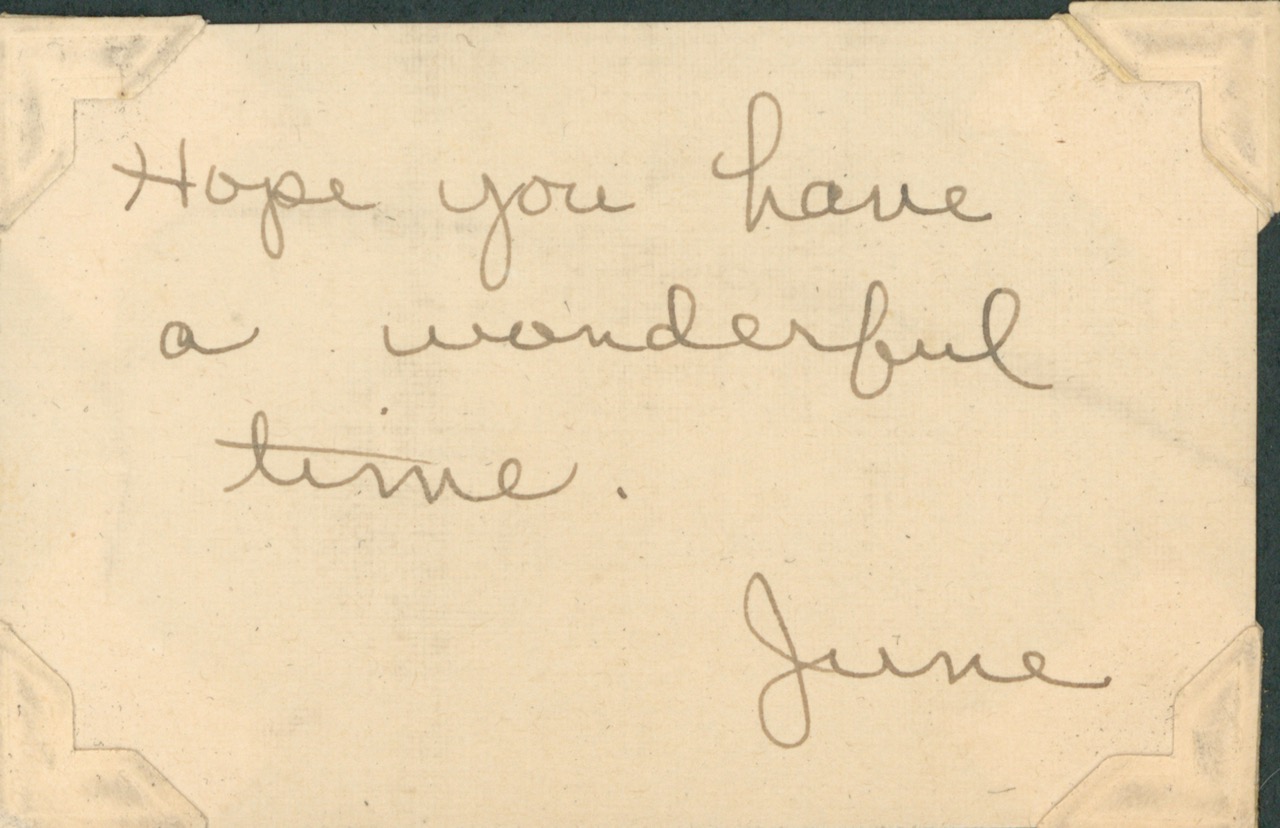 Hope you have
a wonderful
time.
June